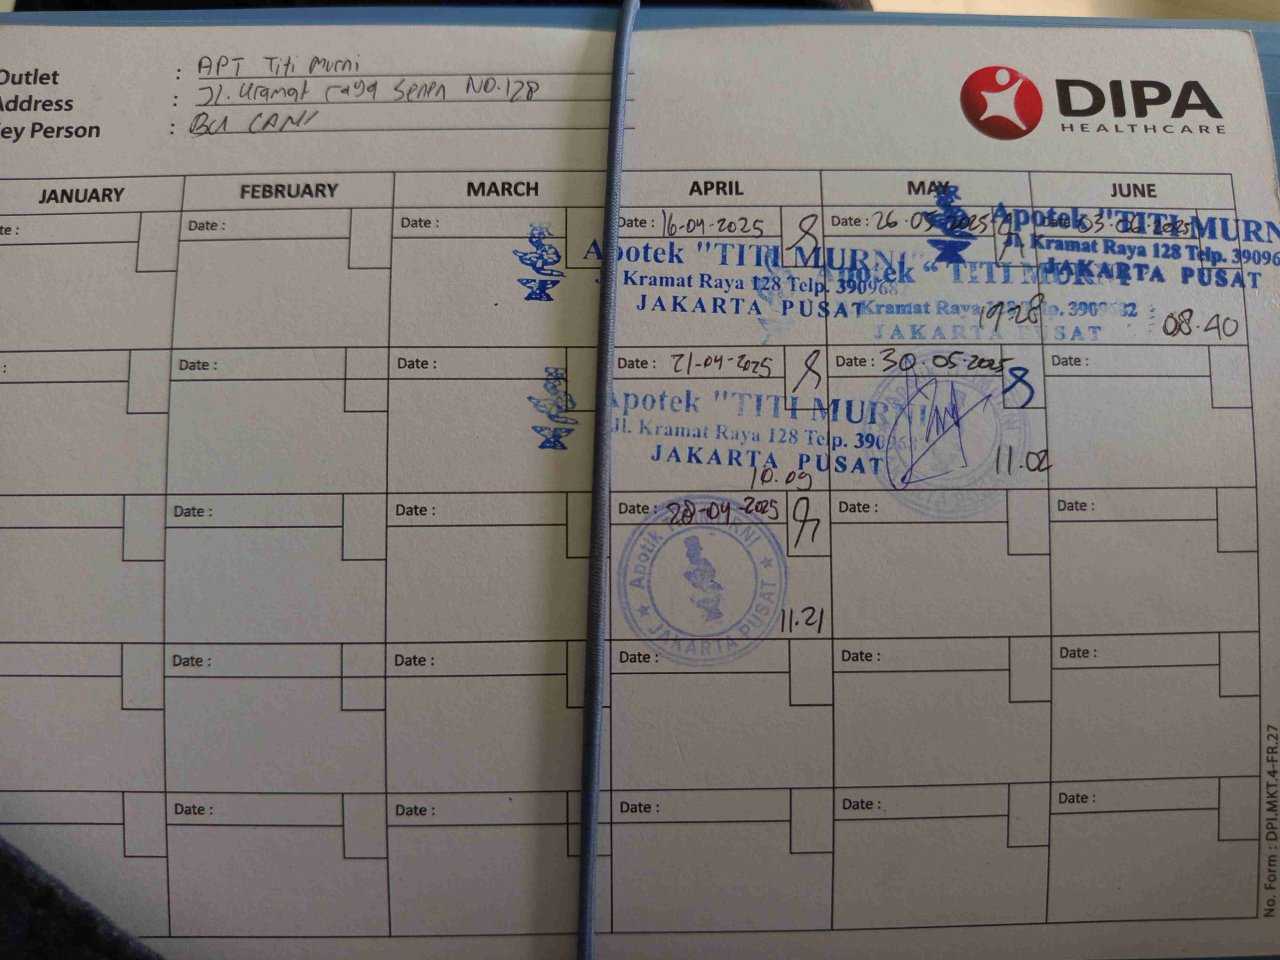 Outlet : APT Titi Murni
Address : Jl. Kramat raya Senen NO.128
ey Person : BU CANI
DIPA
HEALTHCARE
JANUARY FEBRUARY MARCH APRIL MAY JUNE
te : Date : Date : Date : 16-04-2025 Date : 26.05.2025 03.06.2025
Apotek "TITI MURNI
Kramat Raya 128 Telp. 3909682
JAKARTA PUSAT
Apotek "TITI MURNI
Kramat Raya 128 Telp. 3909682
JAKARTA PUSAT
19.28
Apotek "TITI MURN
Jl. Kramat Raya 128 Telp. 39096
JAKARTA PUSAT
08.40
: Date : Date : Date : 21-04-2025 Date : 30.05.2025 Date :
Apotek "TITI MURNI
Jl. Kramat Raya 128 Telp. 39096
JAKARTA PUSAT
10.09
11.02
Date : Date : Date : 28-04-2025 Date : Date :
Apotik TITI MURNI
JAKARTA PUSAT
11.21
Date : Date : Date : Date : Date :
Date : Date : Date : Date : Date :
No. Form : DPI.MKT.4-FR.27